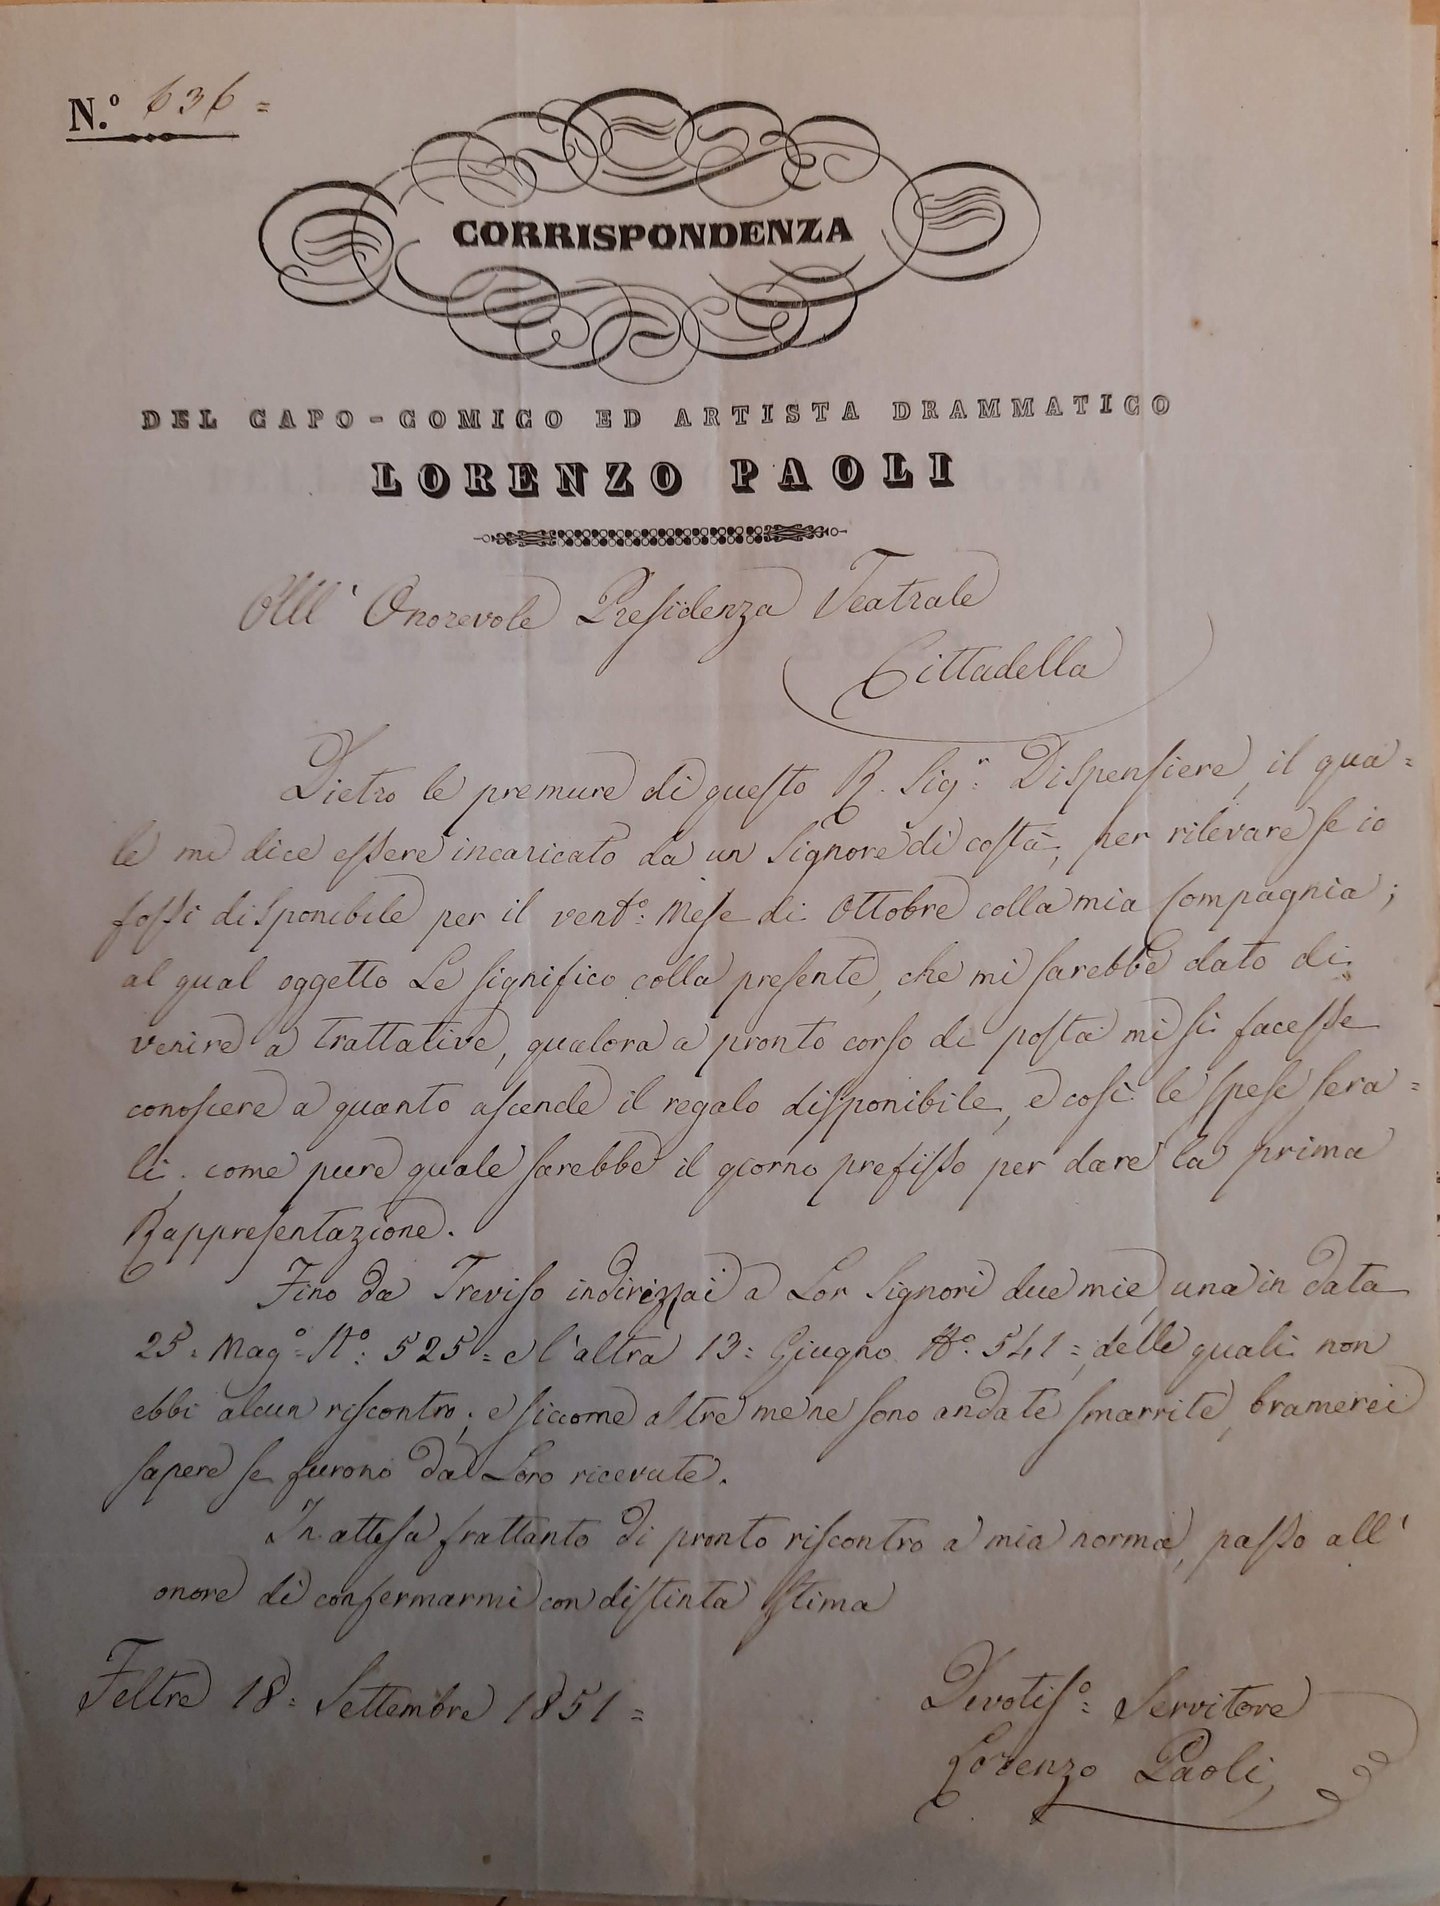 N.º 636 =
CORRISPONDENZA
DEL CAPO-COMICO ED ARTISTA DRAMMATICO
LORENZO PAOLI
All' Onorevole Presidenza Teatrale
Cittadella
Dietro le premure di questo R. Sigr: Dispensiere, il qua=
le mi dice essere incaricato da un Signore di costà, per rilevare se io
fossi disponibile per il ventº: Mese di Ottobre colla mia Compagnia;
al qual oggetto Le significo colla presente, che mi sarebbe dato di
venire a trattative, qualora a pronto corso di posta mi si facesse
conoscere a quanto ascende il regalo disponibile, e così le spese sera=
li, come pure quale sarebbe il giorno prefisso per dare la prima
Rappresentazione.
Fino da Treviso indirizzai a Lor Signori due mie, una in data
25= Magº= Nº: 525= e l'altra 13= Giugno Nº: 541=, delle quali non
ebbi alcun riscontro; e siccome altre mene sono andate smarrite, bramerei
sapere se furono da Loro ricevute.
In attesa frattanto di pronto riscontro a mia norma, passo all'
onore di confermarmi con distinta stima
Feltre 18= Settembre 1851=
Devotisº: Servitore
Lorenzo Paoli